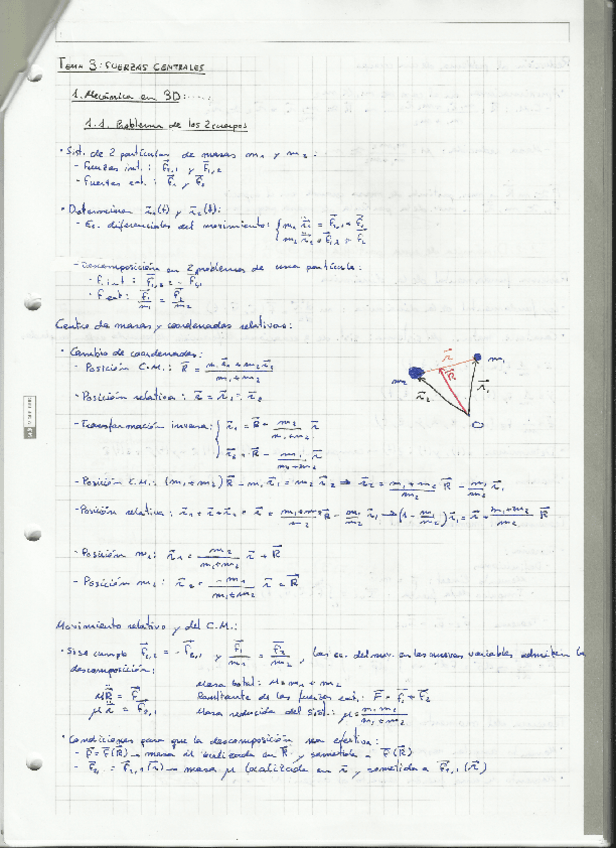 TEMA 3: FUERZAS CENTRALES
1. Mecánica en 3D: ......
1.1. Problema de los 2 cuerpos
· Sist. de 2 partículas de masas m₁ y m₂:
- Fuerzas int.: F⃗₂,₁ y F⃗₁,₂
- Fuerzas ext.: F⃗₁ y F⃗₂
· Determinar r⃗₁(t) y r⃗₂(t):
- Ec. diferenciales del movimiento:
- Descomposición en 2 problemas de una partícula:
- F. int:
- F ext: F⃗₁/m₁ = F⃗₂/m₂
Centro de masas y coordenadas relativas:
· Cambio de coordenadas:
- Posición C.M.: R⃗ = (m₁r⃗₁ + m₂r⃗₂)/(m₁+m₂)
- Posición relativa: r⃗ = r⃗₁ - r⃗₂
- Transformación inversa: { r⃗₁ = R⃗ + m₂/(m₁+m₂) r⃗
r⃗₂ = R⃗ - m₁/(m₁+m₂) r⃗
r⃗ m₁
m₂ R⃗ r⃗₁
r⃗₂
O
- Posición C.M.: (m₁+m₂) R⃗ - m₁r⃗₁ = m₂r⃗₂ ⇒ r⃗₂ = (m₁+m₂)/m₂ R⃗ - m₁/m₂ r⃗₁
- Posición relativa:
- Posición m₁: r⃗₁ = m₂/(m₁+m₂) r⃗ + R⃗
- Posición m₂: r⃗₂ = -m₁/(m₁+m₂) r⃗
Movimiento relativo y del C.M.:
· Si se cumple y F⃗₁/m₁ = F⃗₂/m₂, las ec. del mov. en las nuevas variables admiten la
descomposición:
Masa total: M = m₁ + m₂
Resultante de las fuerzas ext.: F⃗ = F⃗₁ + F⃗₂
Masa reducida del sist.: μ = m₁m₂/(m₁+m₂)
· Condiciones para que la descomposición sea efectiva:
- F⃗ = F⃗(R⃗) → masa M localizada en R⃗ y sometida a F⃗(R⃗)
- F⃗₂,₁ = F⃗₂,₁(r⃗) → masa μ localizada en r⃗ y sometida a F⃗₂,₁(r⃗)